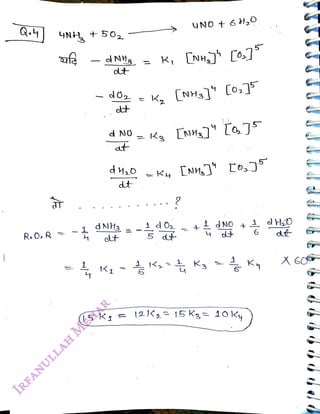 Q.4 4NH3 + 5O2 ⟶ 4NO + 6H2O
यदि - dNH3/dt = K1 [NH3]^4 [O2]^5
- dO2/dt = K2 [NH3]^4 [O2]^5
d NO/dt = K3 [NH3]^4 [O2]^5
d H2O/dt = K4 [NH3]^4 [O2]^5
तो . . . . . . . . . . ?
R.O.R = - 1/4 dNH3/dt = - 1/5 dO2/dt = + 1/4 dNO/dt + 1/6 dH2O/dt
= 1/4 K1 = 1/5 K2 = 1/4 K3 = 1/6 K4 X 60
15 K1 = 12 K2 = 15 K3 = 10 K4